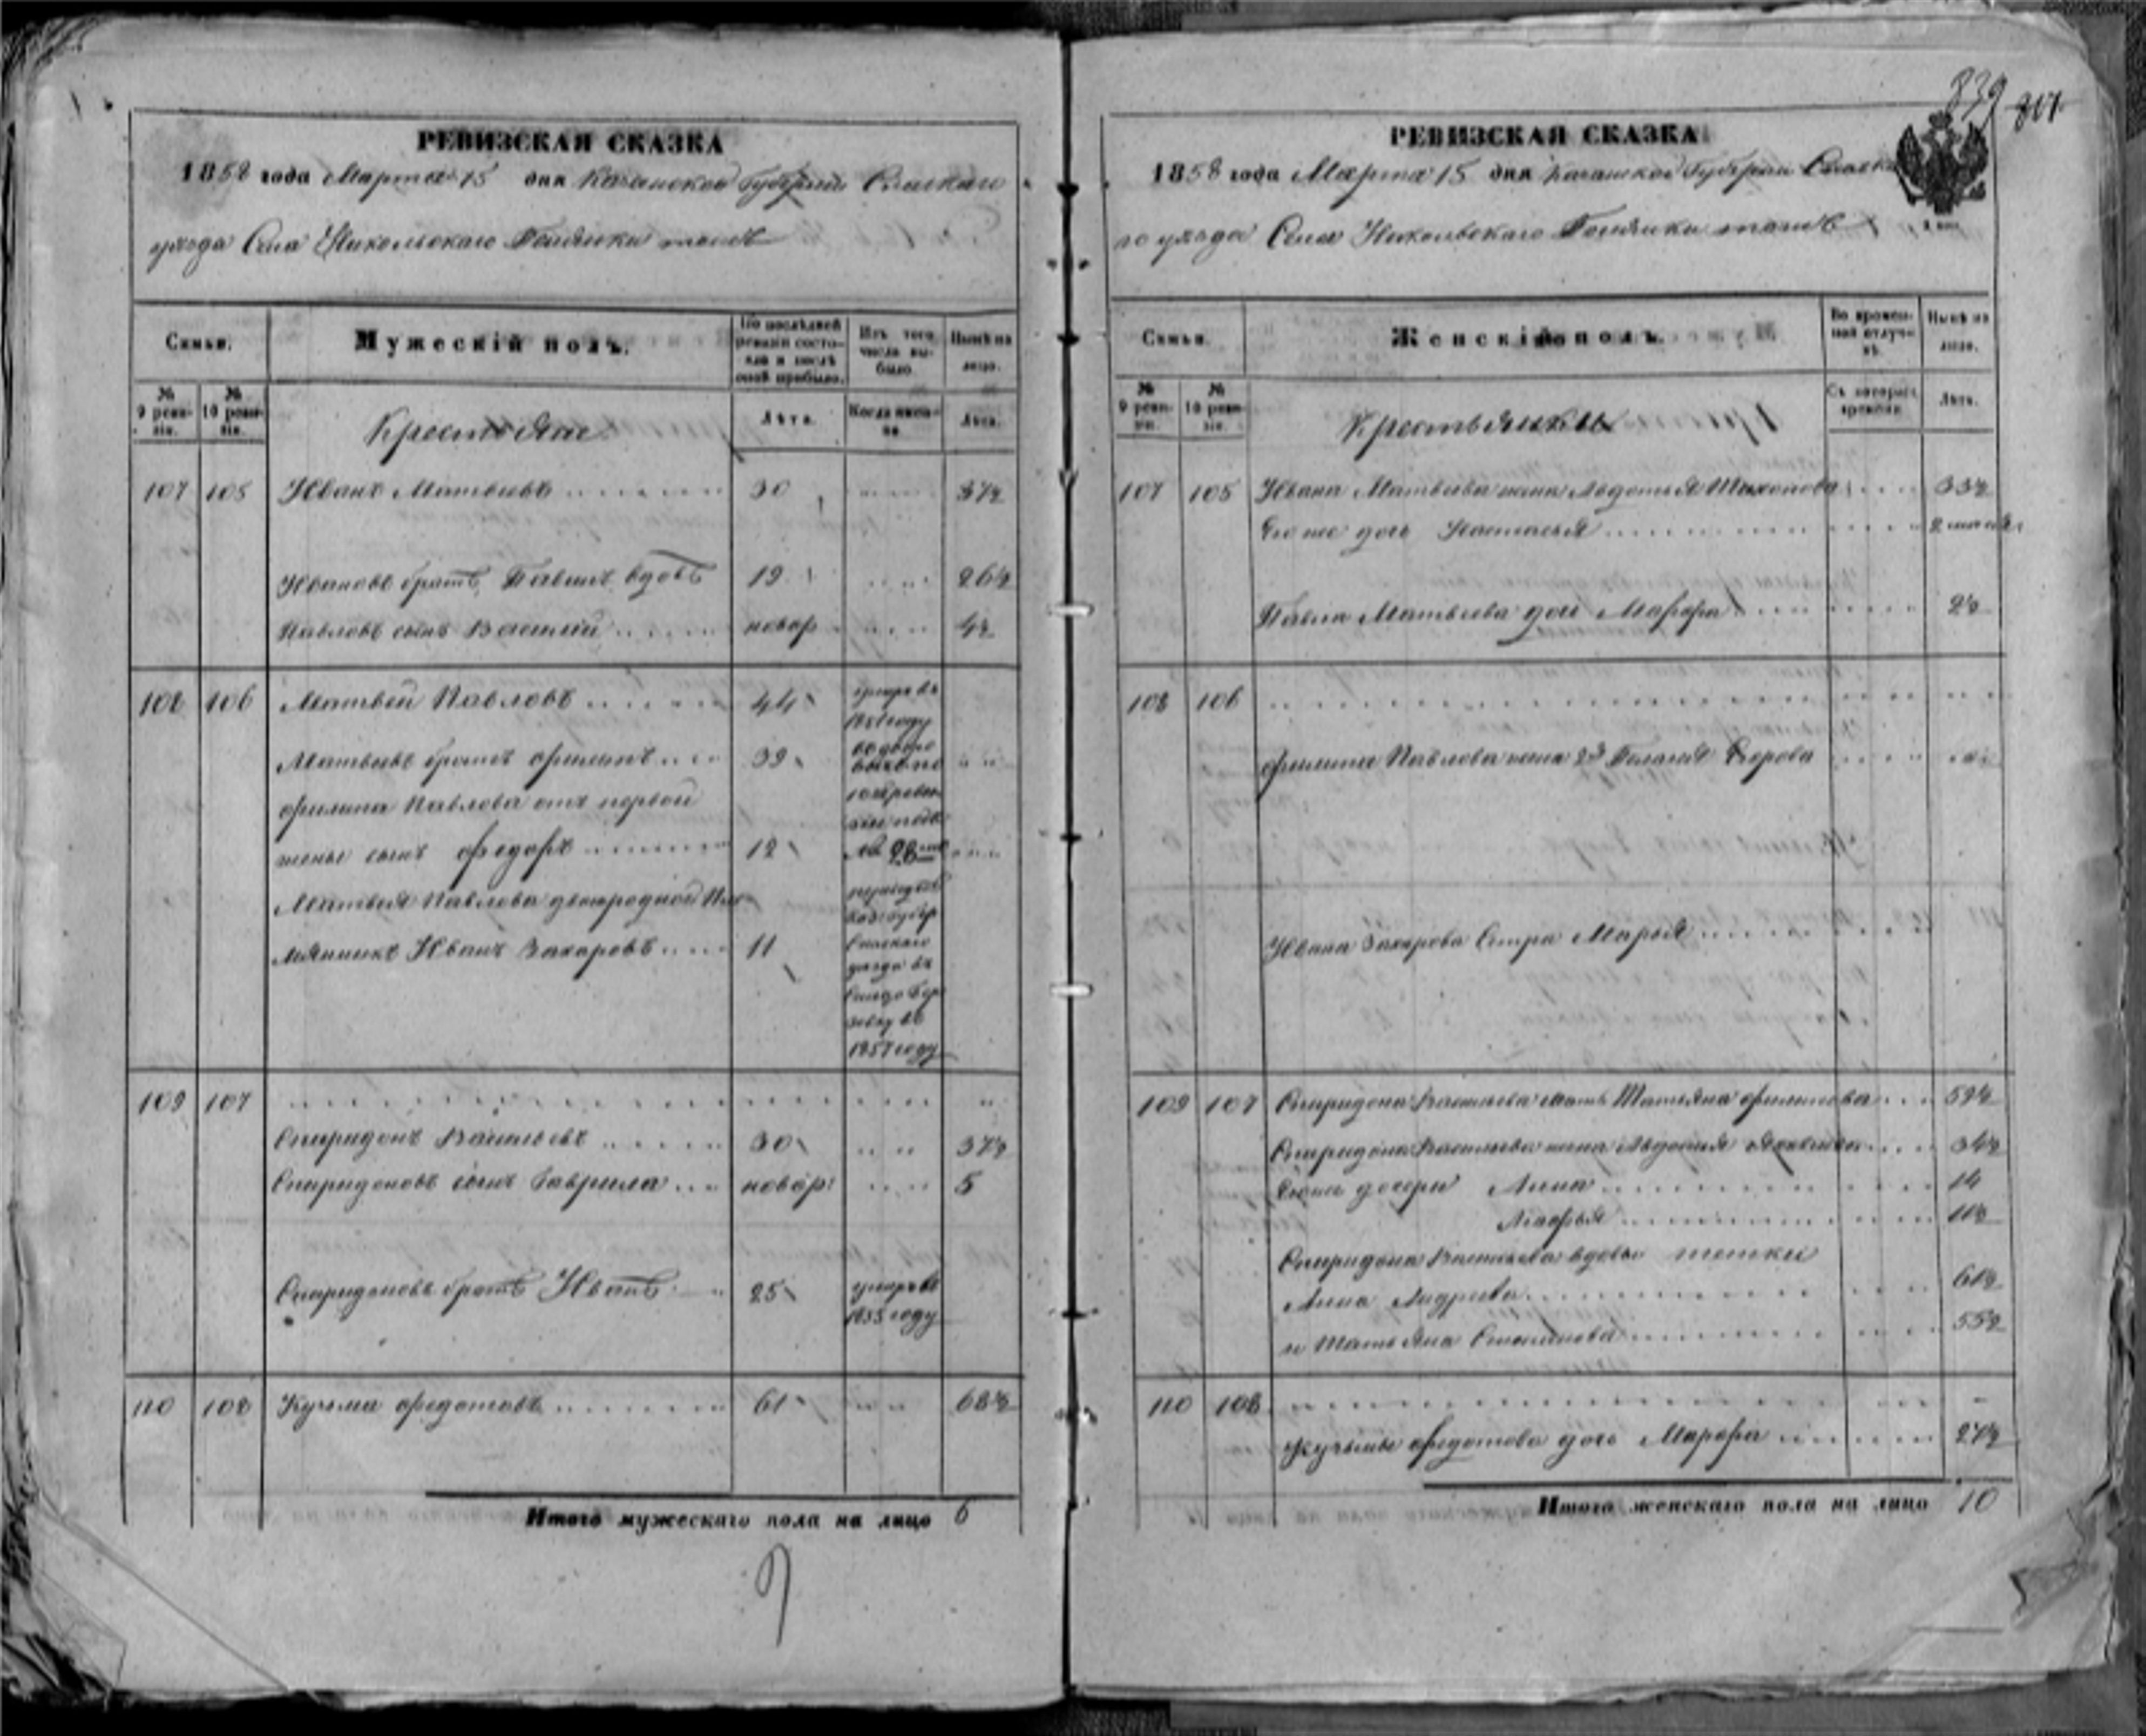 РЕВИЗСКАЯ СКАЗКА
1858 года Марта 15 дня Казанской Губернии Спаскаго
уѣзда Села Никольскаго тожъ
Семьи.
Мужескій полъ.
По послѣдней ревизіи состояло и послѣ оной прибыло.
Изъ того числа выбыло
Нынѣ на лицо.
№ 9 ревизіи.
№ 10 ревизіи.
Крестьяне
Лѣта.
Когда именно
Лѣта.
107 105 Иванъ Матвѣевъ 30 37½
Ивановъ братъ Павелъ вдовъ 19 26½
Павловъ сынъ Василий новор 4½
108 106 Матвей Павловъ 44 умеръ въ
1851 году
Матвѣевъ братъ Филипъ 39
Филипа Павлова отъ первой
жены сынъ Федоръ 12 № 28
Матвея Павлова двоюродной пле
мянникъ Иванъ Захаровъ 11 Спаскаго
уѣзда въ
1857 году
109 107
Спиридонъ Васильевъ 30 37½
Спиридоновъ сынъ Гаврила новор: 5
Спиридоновъ братъ Иванъ 25 умеръ въ
1855 году
110 108 Кузьма Федотовъ 61 68½
Итого мужескаго пола на лицо 6
839 807
РЕВИЗСКАЯ СКАЗКА
1858 года Марта 15 дня Казанской Губернии Спаска
го уѣзда Села Никольскаго тожъ
Семьи.
Женскій полъ.
Во временной отлучкѣ.
Нынѣ на лицо.
№ 9 ревизіи.
№ 10 ревизіи.
Крестьянки
Съ котораго времени.
Лѣта.
107 105 Ивана Матвѣева жена Авдотья Тихонова 33½
Его же дочь Настасья
Павла Матвѣева дочь Марфа 2½
108 106
Филипа Павлова жена 2я Пелагея Егорова
Ивана Захарова Сестра Марья
109 107 Спиридона Васильева мать Татьяна Филипова 59½
Спиридона Васильева жена Авдотья 34½
Его же дочери Анна 14
11½
Спиридона Васильева вдовы тетки
Анна Андреева 61½
и Татьяна Степанова 55½
110 108
Кузьмы Федотова дочь Марфа 27½
Итого женскаго пола на лицо 10